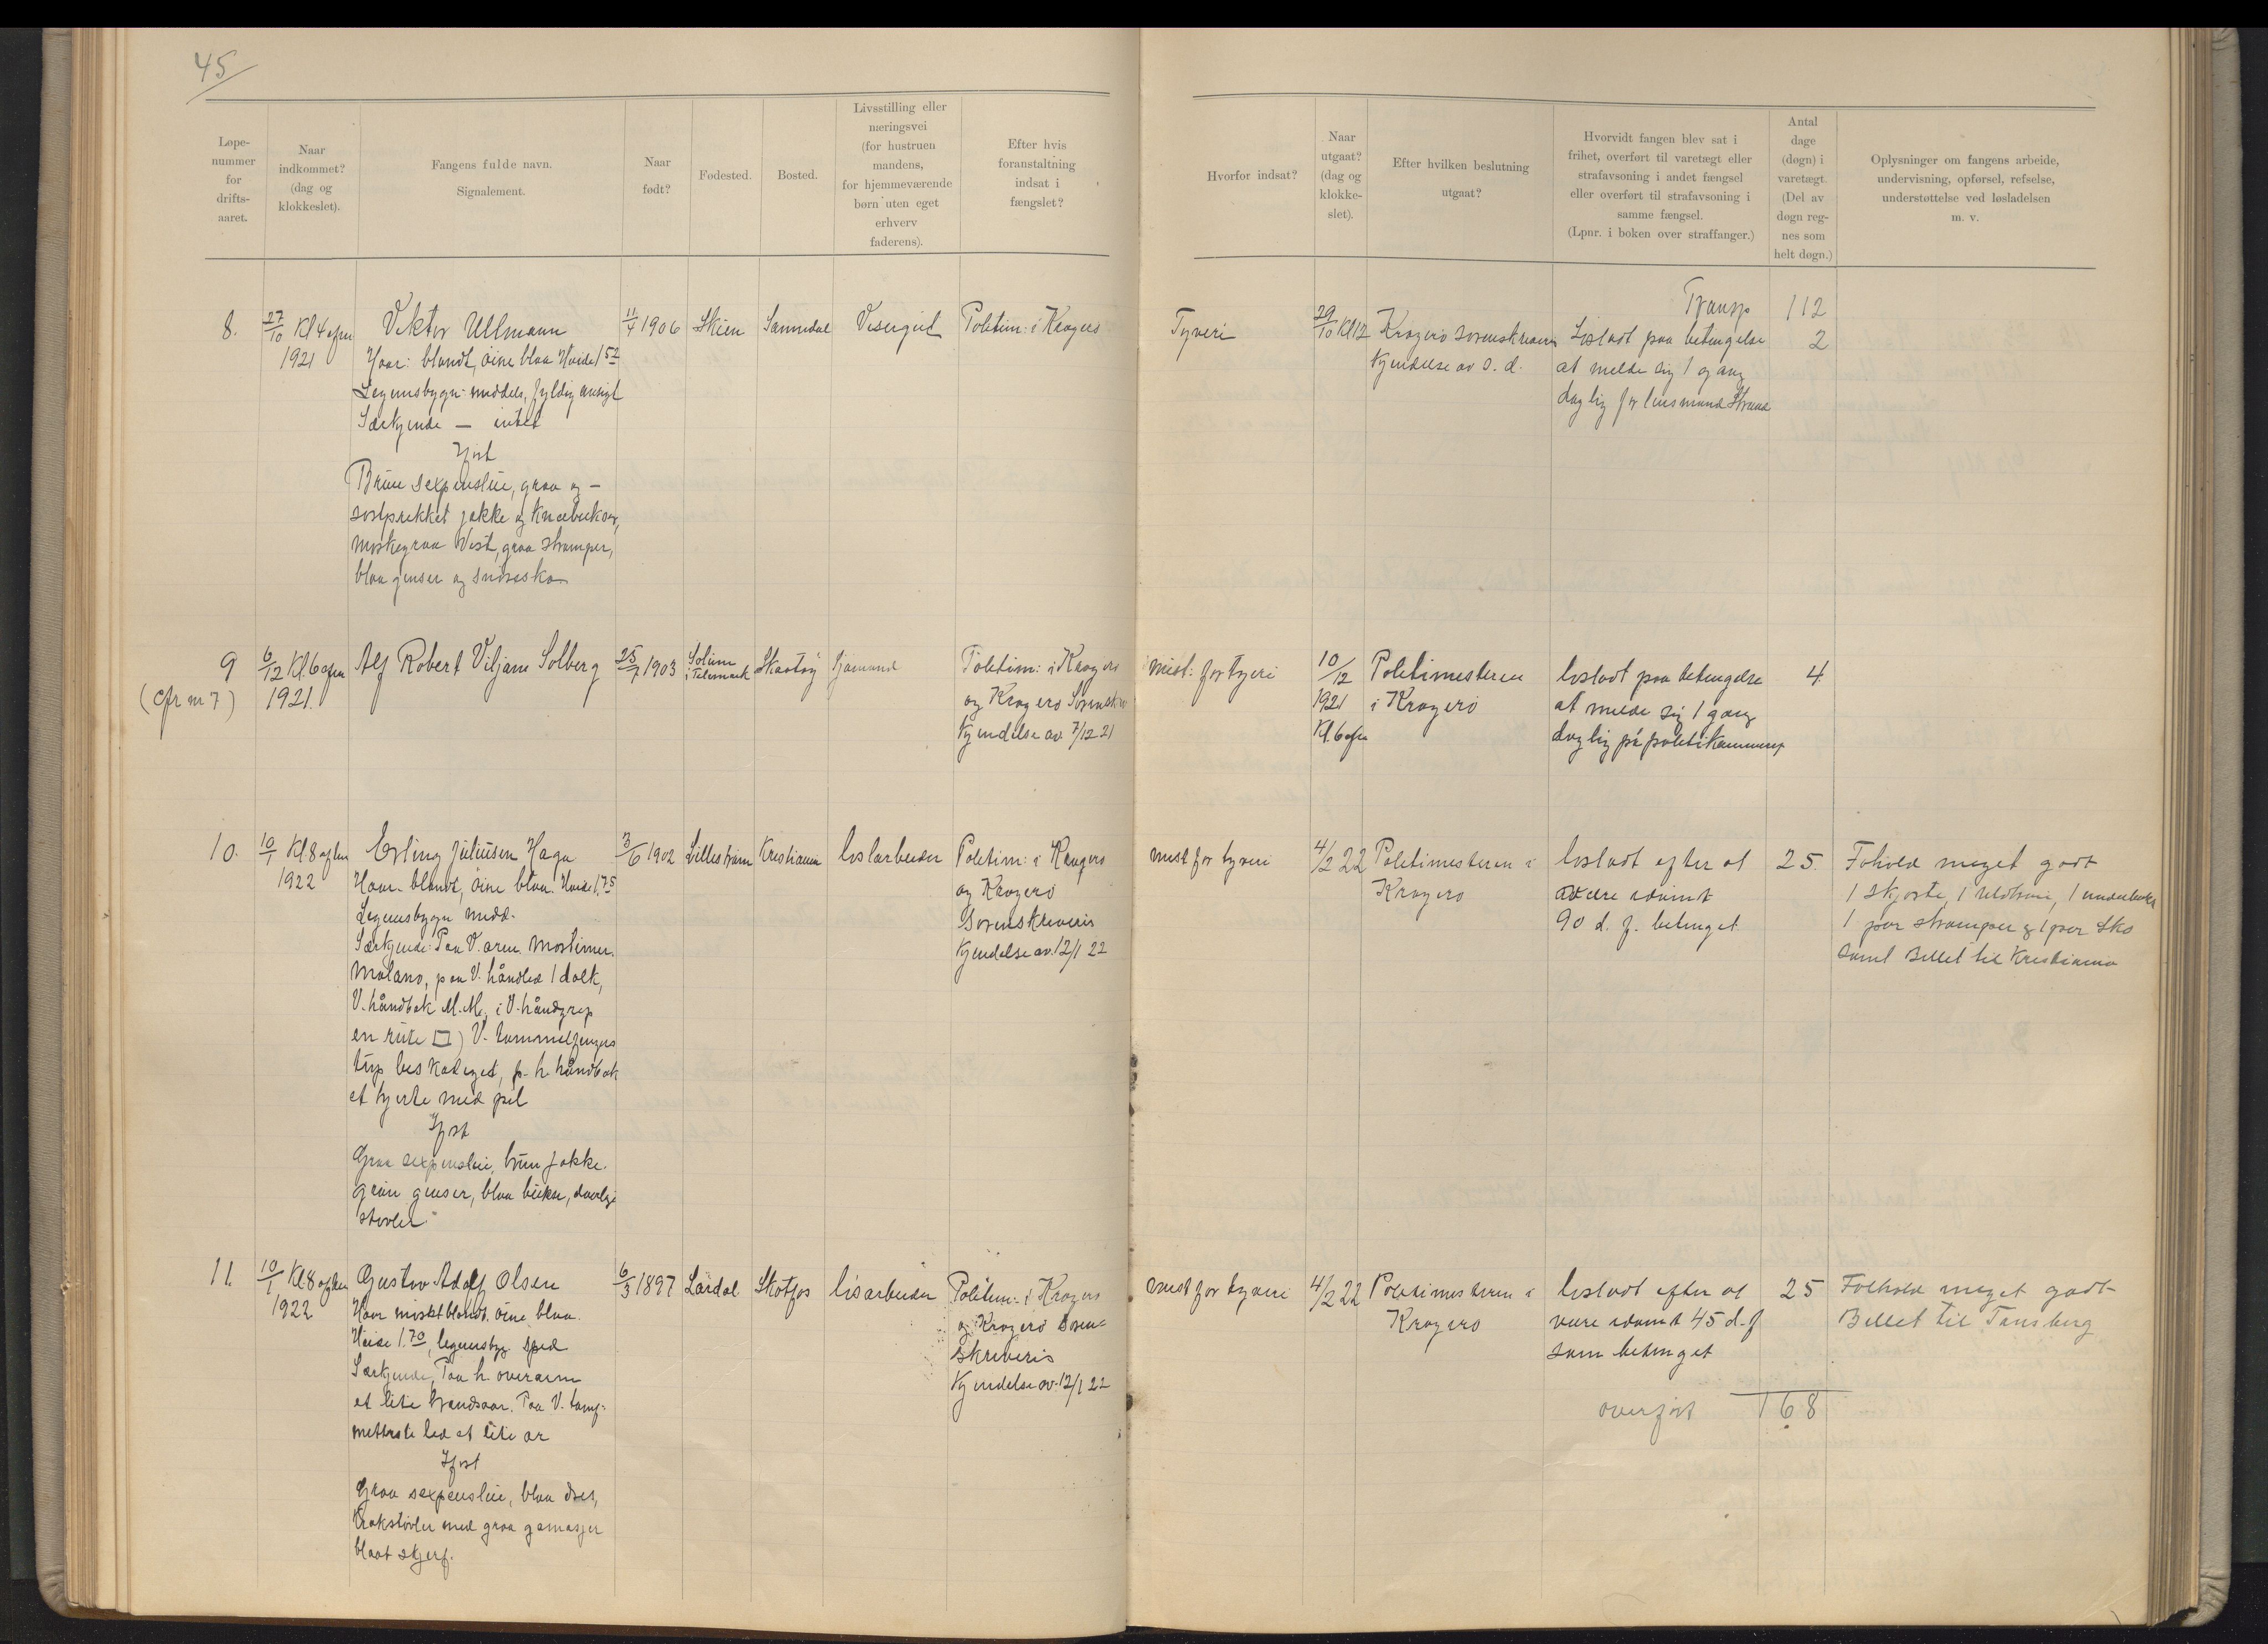 45
Løpe-
nummer
for
drifts-
aaret.
Naar
indkommet?
(dag og
klokkeslet).
Fangens fulde navn.
Signalement.
Naar
født?
Fødested.
Bosted.
Livsstilling eller
næringsvei
(for hustruen
mandens,
for hjemmeværende
børn uten eget
erhverv
faderens).
Efter hvis
foranstaltning
indsat i
fængslet?
Hvorfor indsat?
Naar
utgaat?
(dag og
klokke-
slet).
Efter hvilken beslutning
utgaat?
Hvorvidt fangen blev sat i
frihet, overført til varetægt eller
strafavsoning i andet fængsel
eller overført til strafavsoning i
samme fængsel.
(Lpnr. i boken over straffanger.)
Antal
dage
(døgn) i
varetægt.
(Del av
døgn reg-
nes som
helt døgn.)
Oplysninger om fangens arbeide,
undervisning, opførsel, refselse,
understøttelse ved løsladelsen
m. v.
Transp 112
8.
27/10 Kl 4 efm
1921
Viktor Ullmann
Haar: blondt, öine blaa Höide 1 52
Legemsbygn middels, fyldig ansigt
Særkjende — intet
Iført
Brun sexpenslue, graa og -
sortprikket jakke og knæbukser,
mørkegraa Vest, graa strømper,
blaa genser og snöresko
11/4 1906
Skien
Sannidal
Visergut
Politim: i Kragerö
Tyveri
29/10 Kl 12
Kragerö sorenskrivers
Kjendelse av s. d.
Löslatt paa betingelse
at melde sig 1 gang
daglig for lensmand Strand
2
9
(cfr nr 7)
6/12 Kl. 6 efm
1921.
Alf Robert Viljam Solberg
25/7 1903
Solum
i Telemark
Skaatöy
Sjömand
Politim: i Kragerö
og Kragerö Sorenskr
Kjendelse av 7/12 21
Mist: for tyveri
10/12
1921
Kl. 6 efm
Politimesteren
i Kragerö
löslatt paa betingelse
at melde sig 1 gang
daglig på politikammeret
4
10.
10/1 Kl. 8 aften
1922
Erling Juliusen Haga
Haar- blondt, öine blaa. Höide 1.75
Legemsbygn midd-
Særkjende: Paa V. arm.
Malano, paa V. håndled 1 dolk,
V. håndbak M. M., i V. håndgrep
en rute □) V- tommelfingers
tup beskadiget, p- h. håndbak
et hjerte med pil
Iført
Graa sexpenslue, brun jakke.
grön genser, blaa bukse, daarlige
stövler
3/6 1902
Lilleström
Kristiania
lösarbeider
Politim: i Kragerö
og Kragerö
Sorenskriveris
Kjendelse av. 12/1 22
mist for tyveri
4/2 22
Politimesteren i
Kragerö
löslatt efter at
være idömt
90 d. f. betinget
25.
Fohold meget godt
1 skjorte, 1 uldtröie, 1 underbukse
1 par strömper og 1 par sko
samt Billet til Kristiania
11.
10/1 Kl. 8 aften
1922
Gustav Adolf Olsen
Haar mörkt blondt. öine blaa.
Höide 1.70, legemsbyg. sped
Særkjende, Paa h. overarm
et lite brandsaar. Paa V. lang-
metterste led et lite ar
Iført
Graa sexpenslue, blaa dres,
Krakstövler med graa gamasjer
blaat skjerf.
6/3 1897
Lardal
Skotfos
lösarbeider
Politim- i Kragerö
og Kragerö Soren-
skriveris
Kjendelse av. 12/1 22
mist for tyveri
4/2 22
Politimesteren i
Kragerö
löslatt efter at
være idömt 45 d. f
som betinget
25
Fohold meget godt
Billet til Tönsberg
overfört 168